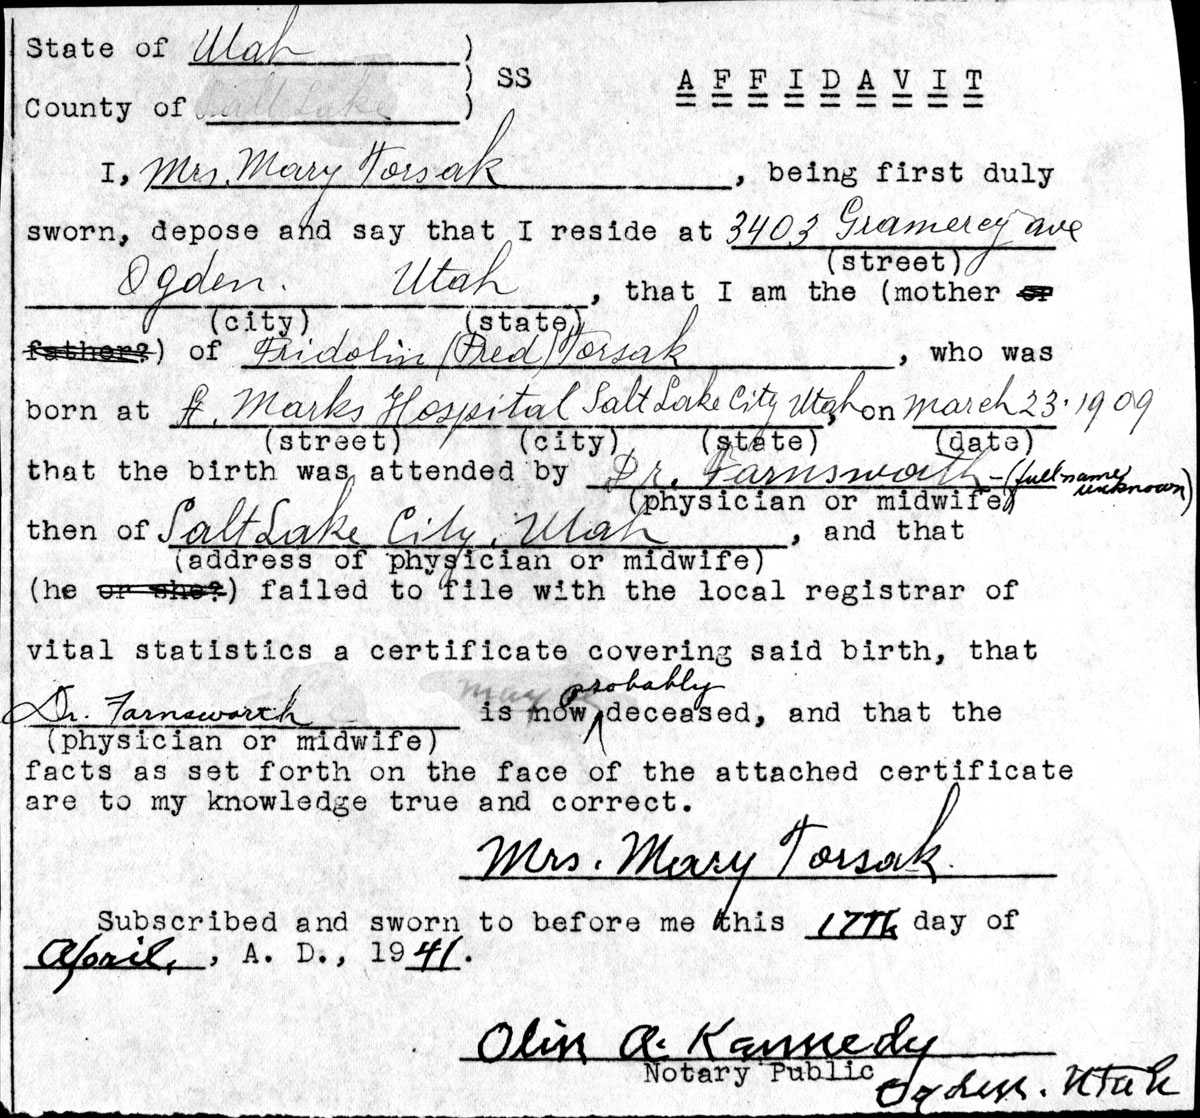 State of Utah )
) SS AFFIDAVIT
County of Salt Lake )
I, Mrs. Mary Torsak, being first duly
sworn, depose and say that I reside at 3403 Gramercy ave
(street)
Ogden. Utah, that I am the (mother or
(city) (state)
father?) of Fridolin (Fred) Torsak, who was
born at St. Marks Hospital Salt Lake City Utah, on March 23. 1909
(street) (city) (state) (date)
that the birth was attended by Dr. Farnsworth - (full name unknown)
(physician or midwife)
then of Salt Lake City, Utah, and that
(address of physician or midwife)
(he or she?) failed to file with the local registrar of
vital statistics a certificate covering said birth, that
probably
Dr. Farnsworth is now deceased, and that the
(physician or midwife)
facts as set forth on the face of the attached certificate
are to my knowledge true and correct.
Mrs. Mary Torsak.
Subscribed and sworn to before me this 17th day of
April, , A. D., 1941.
Olin A. Kennedy
Notary Public
Ogden. Utah